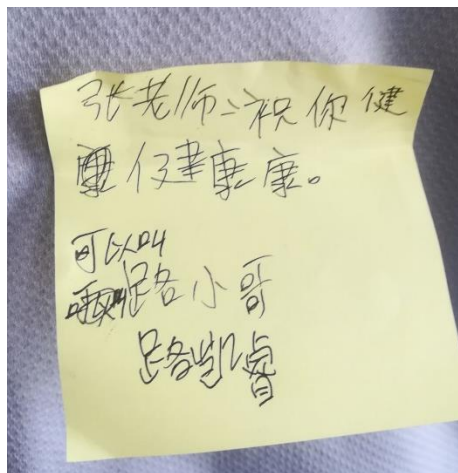 张老师:祝你健
康健康康。
可以叫
路小哥
路凯睿